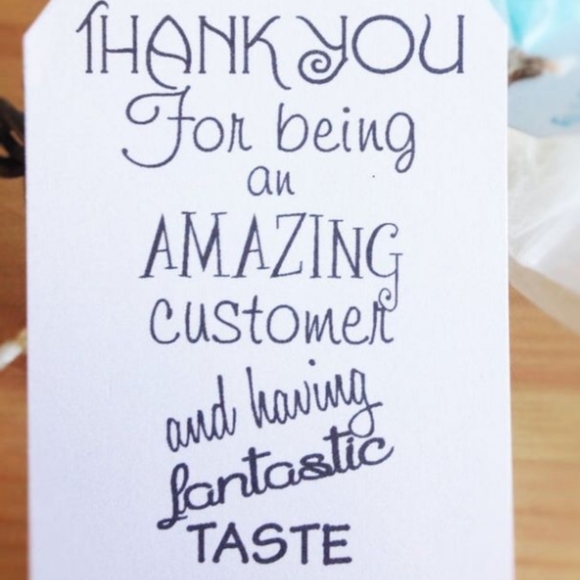 THANK YOU
For being
an
AMAZING
customer
and having
fantastic
TASTE